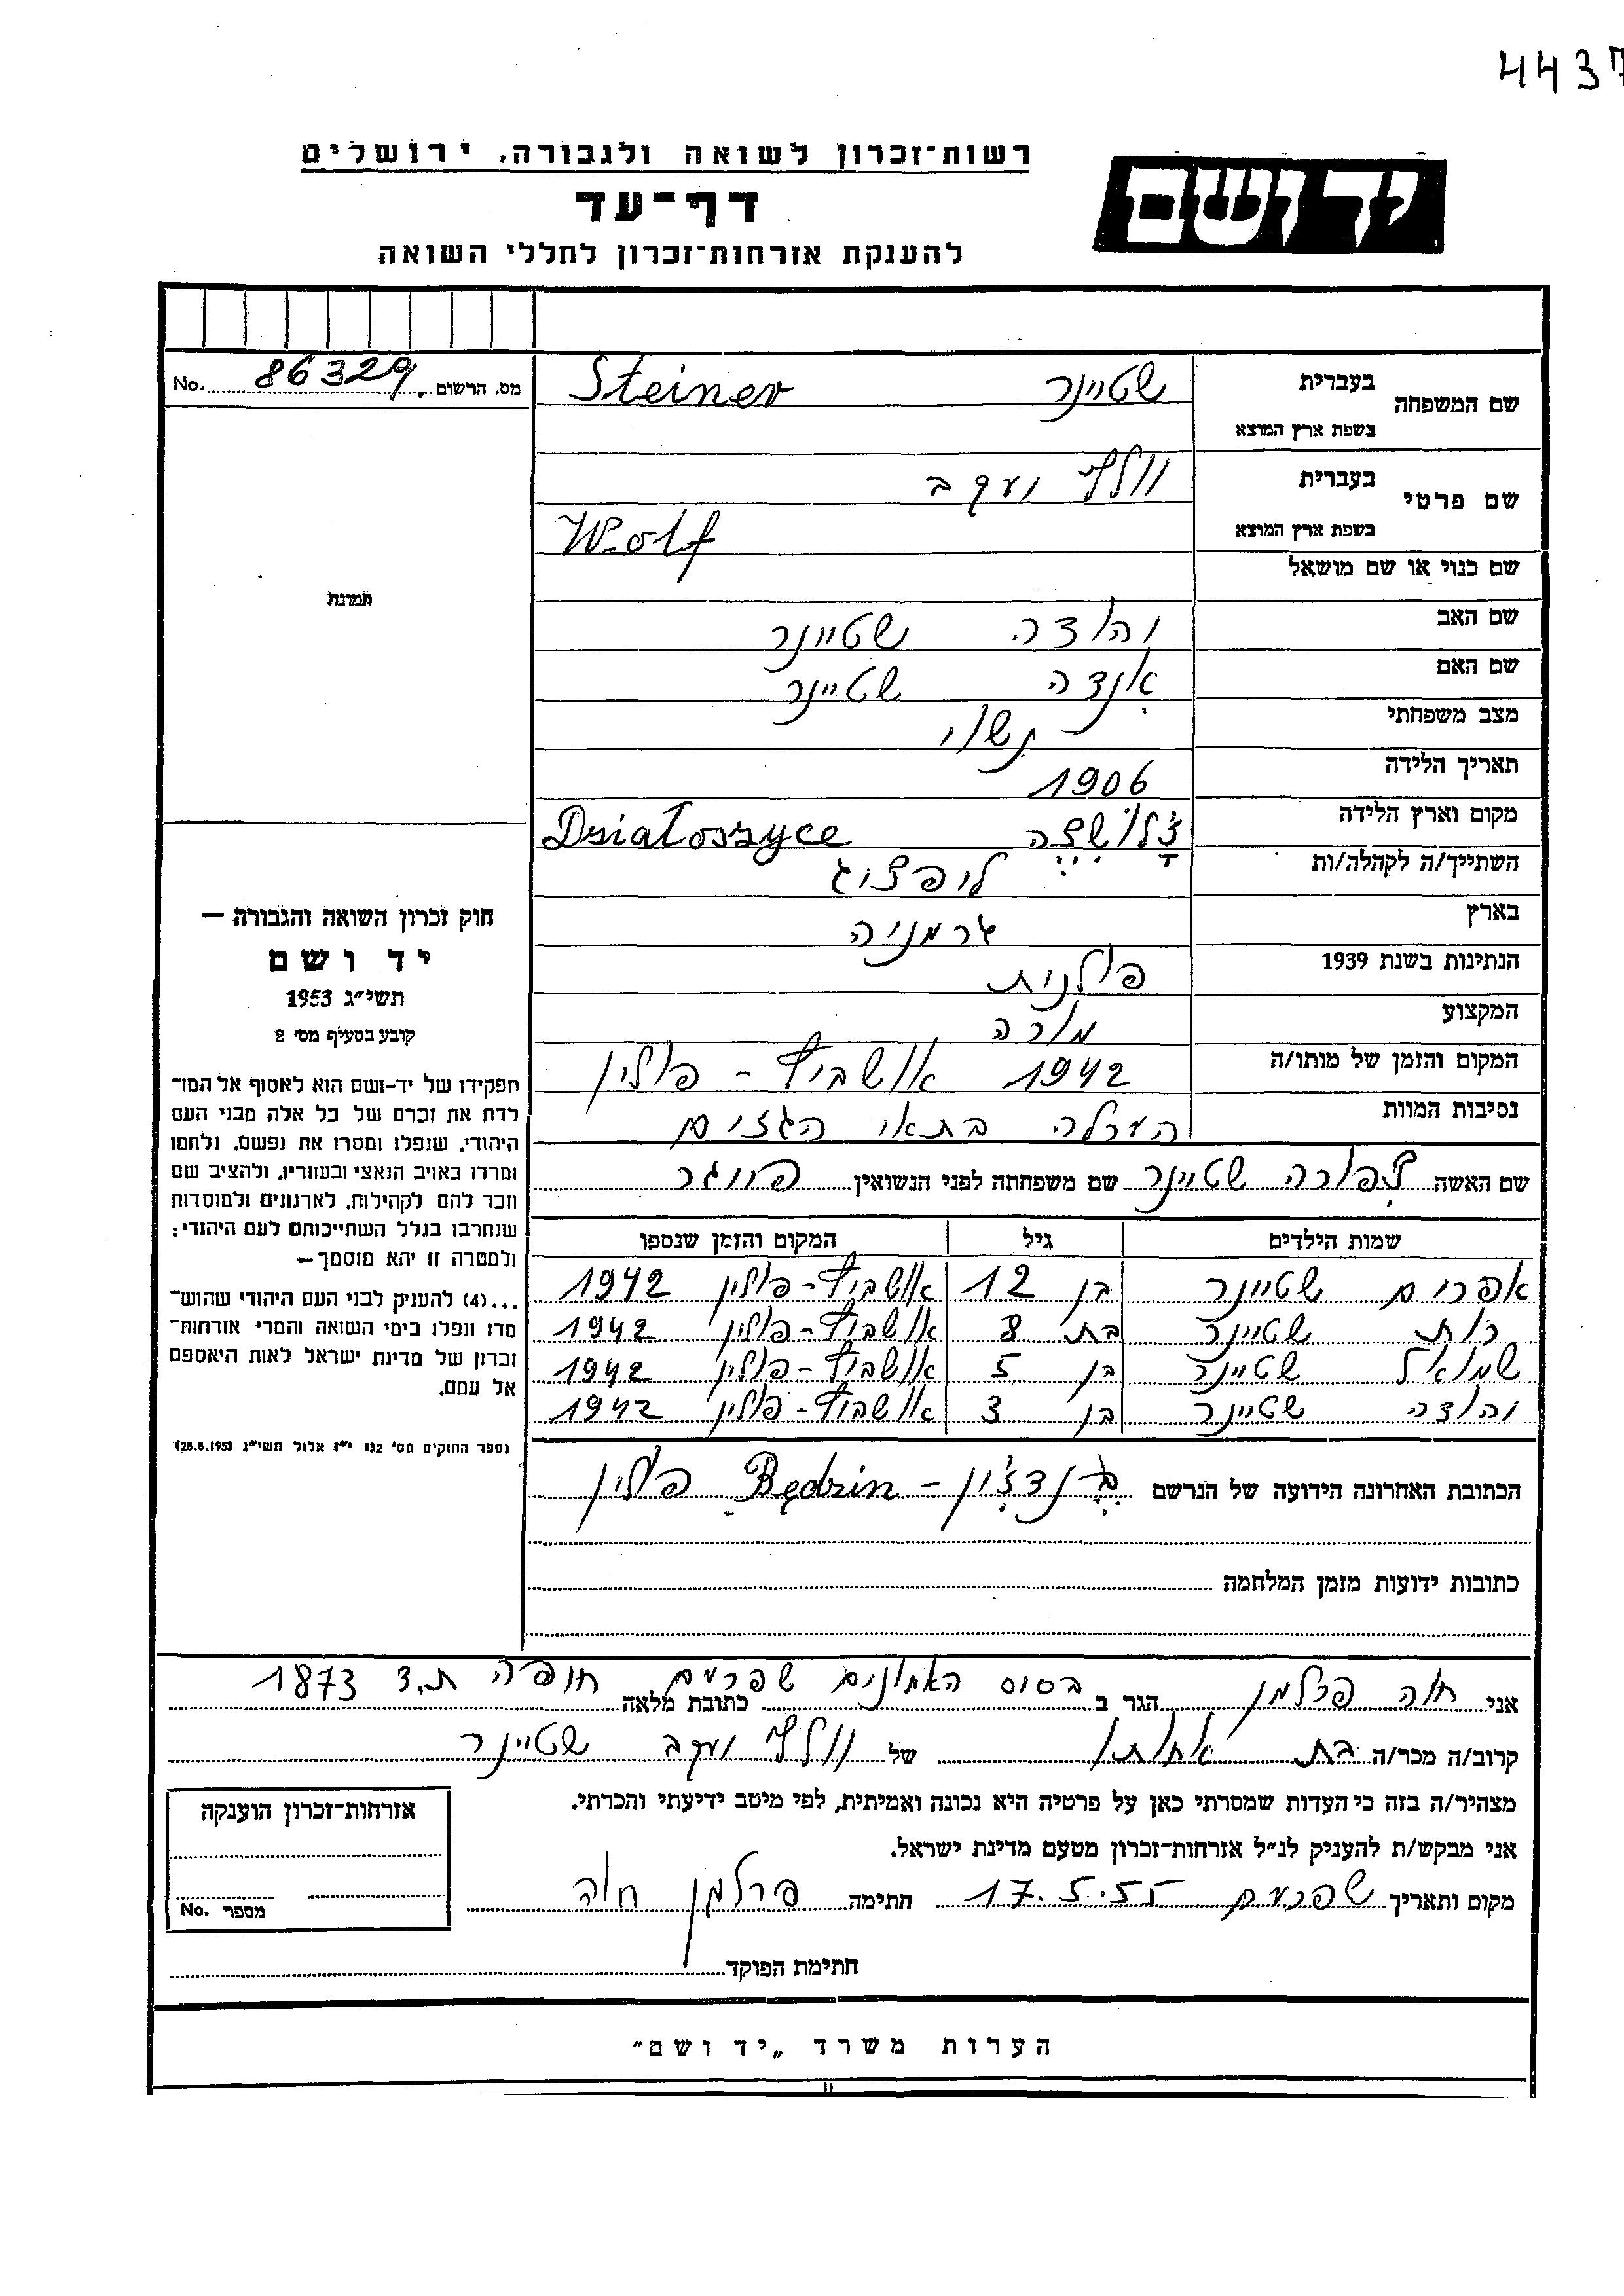 4437
רשות־זכרון לשואה ולגבורה, ירושלים
יד ושם
דף־עד
להענקת אזרחות־זכרון לחללי השואה
שם המשפחה
בעברית
שטיינר Steiner
בשפת ארץ המוצא
מס. הרשום 86329 No.
שם פרטי
בעברית
וולף יעקב
בשפת ארץ המוצא
Wolf
שם כנוי או שם מושאל
תמונת
שם האב יהודה שטיינר
שם האם שטיינר
מצב משפחתי נשוי
תאריך הלידה 1906
מקום וארץ הלידה Dzialoszyce
השתייך/ה לקהלה/ות לייפציג
בארץ גרמניה
הנתינות בשנת 1939 פולנית
המקצוע מורה
המקום והזמן של מותו/ה 1942 אושביץ - פולין
נסיבות המוות הועלה בתאי הגזים
שם האשה צפורה שטיינר שם משפחתה לפני הנשואין
שמות הילדים גיל המקום והזמן שנספו
אפרים שטיינר בן 12 אושביץ - פולין 1942
רות שטיינר בת 8 אושביץ - פולין 1942
שמואל שטיינר בן 5 אושביץ - פולין 1942
יהודה שטיינר בן 3 אושביץ - פולין 1942
הכתובת האחרונה הידועה של הנרשם בנדז'ין - Będzin פולין
כתובות ידועות מזמן המלחמה
חוק זכרון השואה והגבורה —
יד ושם
תשי״ג 1953
קובע בסעיף מס׳ 2
תפקידו של יד-ושם הוא לאסוף אל המו־
לדת את זכרם של כל אלה מבני העם
היהודי, שנפלו ומסרו את נפשם, נלחמו
ומרדו באויב הנאצי ובעוזריו, ולהציב שם
וזכר להם לקהילות, לארגונים ולמוסדות
שנחרבו בגלל השתייכותם לעם היהודי;
ולמטרה זו יהא מוסמך —
...(4) להעניק לבני העם היהודי שהוש־
מדו ונפלו בימי השואה והמרי אזרחות־
זכרון של מדינת ישראל לאות היאספם
אל עמם.
(ספר החוקים מס׳ 132 י״ז אלול תשי״ג 28.8.1953)
אני חוה פרלמן הגר ב שפרעם כתובת מלאה חיפה ת.ד 1873
קרוב/ה מכר/ה בת אחותו של וולף יעקב שטיינר
מצהיר/ה בזה כי העדות שמסרתי כאן על פרטיה היא נכונה ואמיתית, לפי מיטב ידיעתי והכרתי.
אני מבקש/ת להעניק לנ״ל אזרחות־זכרון מטעם מדינת ישראל.
מקום ותאריך שפרעם 17.5.55 חתימה פרלמן חוה
חתימת הפוקד
אזרחות־זכרון הוענקה
מספר No.
הערות משרד „יד ושם״